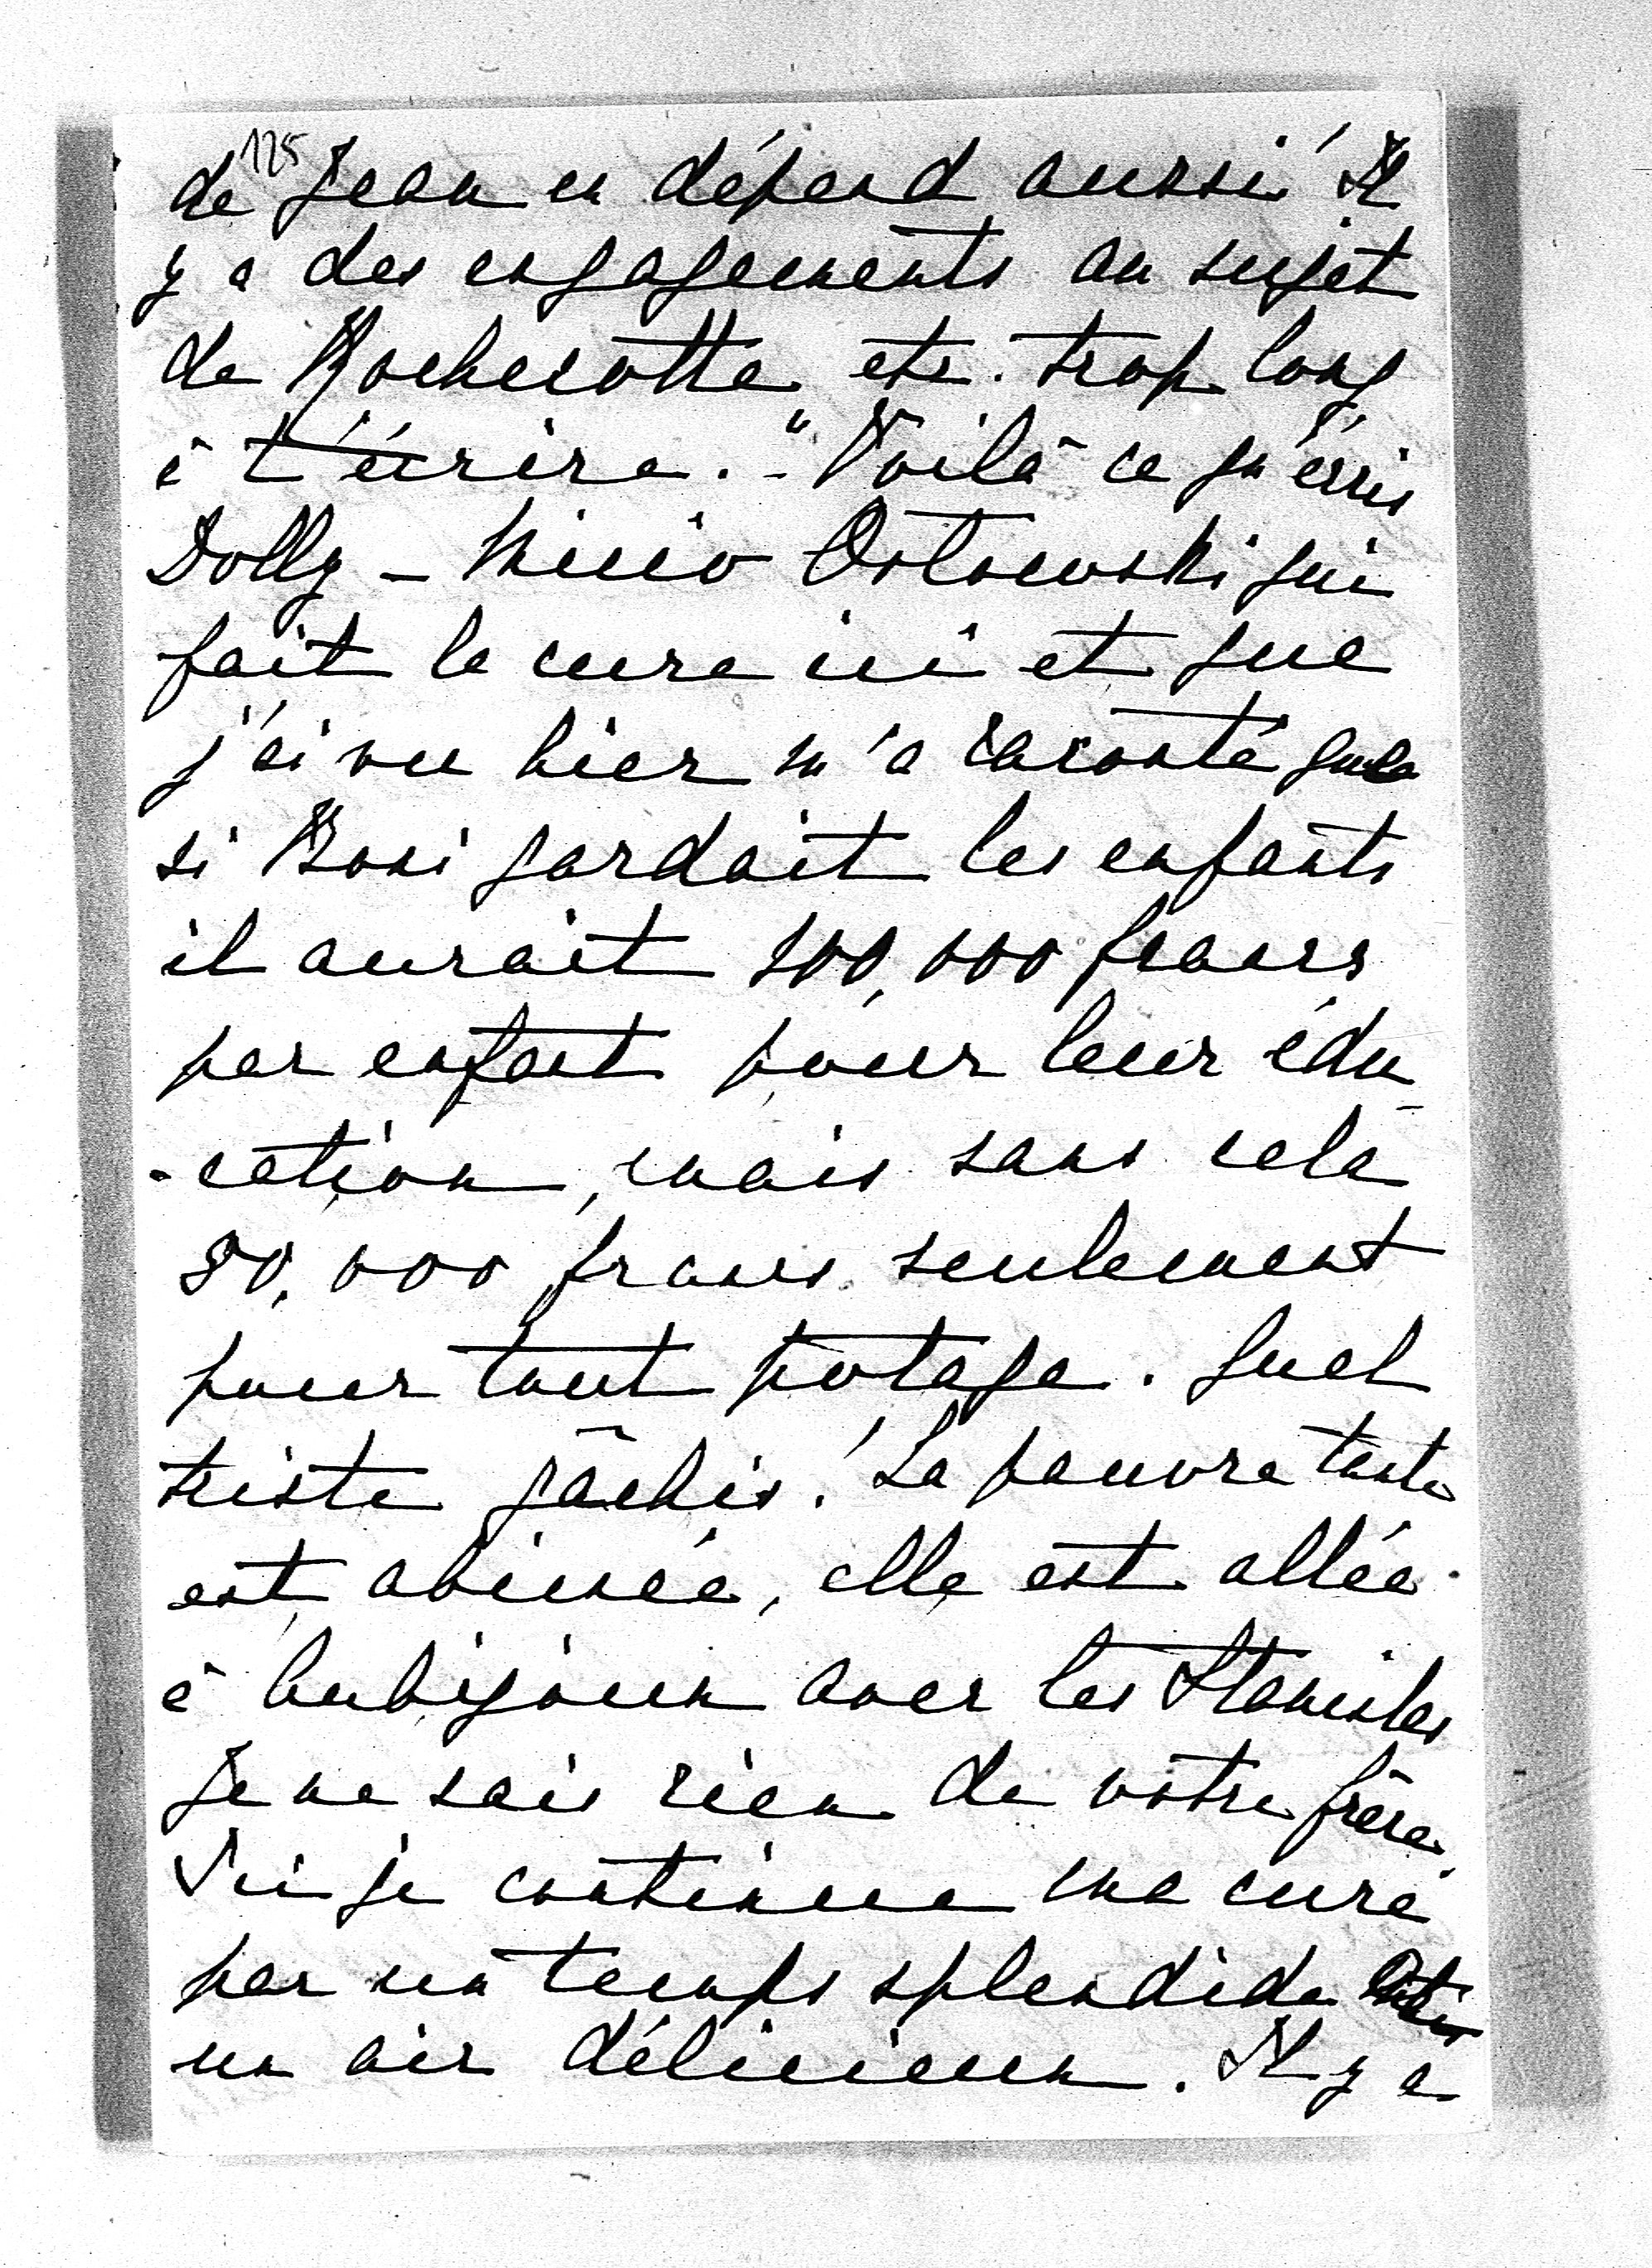 125
de Jean en dépend aussi Il
y a des engagements au sujet
de Rochecotte etc. trop long
à t'écrire." - Voilà ce qu'écrit
Dolly - Orlowski qui
fait la cure ici et que
j'ai vu hier m'a raconté que
si Boni gardait les enfants
il aurait 100,000 francs
par enfant pour leur édu-
-cation, mais sans cela
80,000 francs seulement
pour tout potage. Quel
triste gâchis! La pauvre tante
est abimée, elle est allée
à avec les Stanislas
Je ne sais rien de votre frère.
Ici je continue ma cure
par un temps splendide
un air délicieux. Il y a